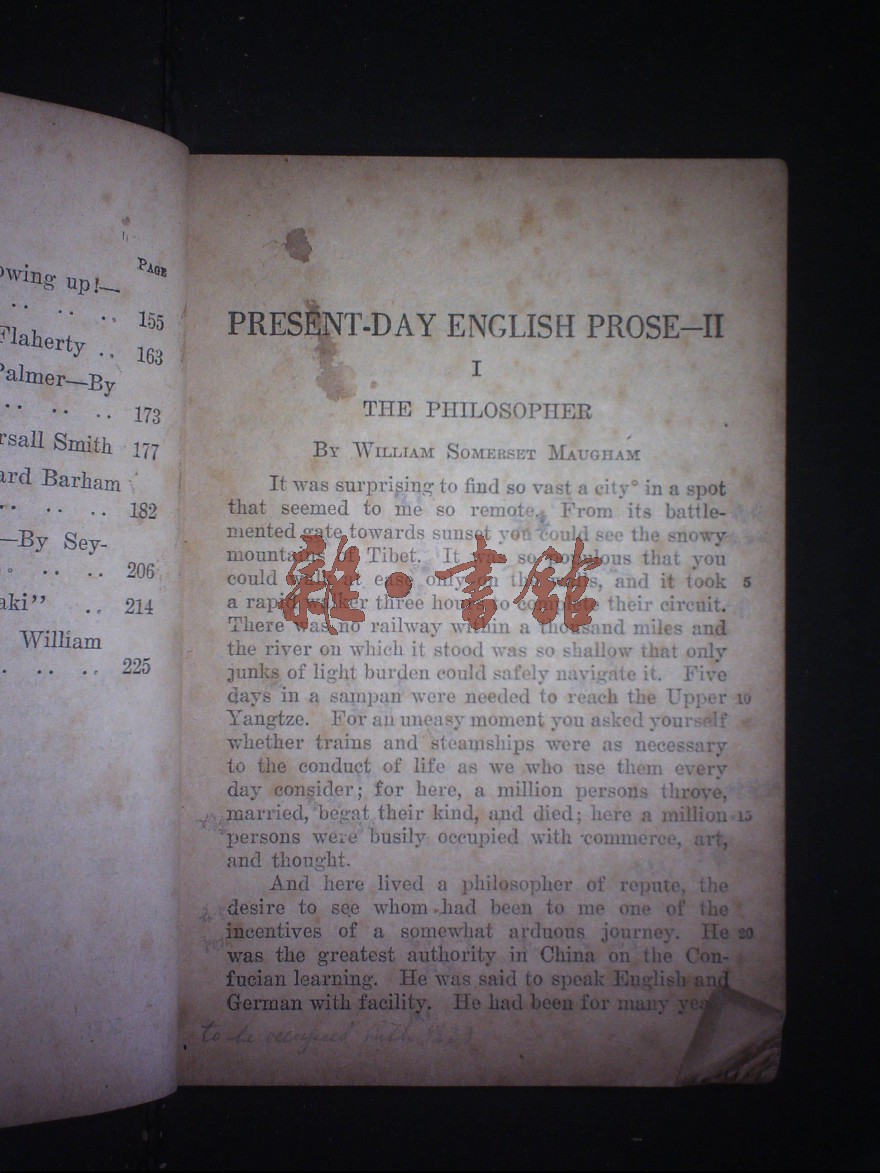 PAGE
owing up!—
.. .. .. 155
Flaherty .. 163
Palmer—By
.. .. .. 173
rsall Smith 177
ard Barham
.. .. .. 182
—By Sey-
.. .. .. 206
aki" .. 214
William
.. .. .. 225
PRESENT-DAY ENGLISH PROSE—II
I
THE PHILOSOPHER
BY WILLIAM SOMERSET MAUGHAM
It was surprising to find so vast a city° in a spot
that seemed to me so remote. From its battle-
mented gate towards sunset you could see the snowy
mountains of Tibet. It was so populous that you
could walk at ease only on the walls, and it took 5
a rapid walker three hours to complete their circuit.
There was no railway within a thousand miles and
the river on which it stood was so shallow that only
junks of light burden could safely navigate it. Five
days in a sampan were needed to reach the Upper 10
Yangtze. For an uneasy moment you asked yourself
whether trains and steamships were as necessary
to the conduct of life as we who use them every
day consider; for here, a million persons throve,
married, begat their kind, and died; here a million 15
persons were busily occupied with commerce, art,
and thought.
And here lived a philosopher of repute, the
desire to see whom had been to me one of the
incentives of a somewhat arduous journey. He 20
was the greatest authority in China on the Con-
fucian learning. He was said to speak English and
German with facility. He had been for many yea
to be occupied with
雜·書館